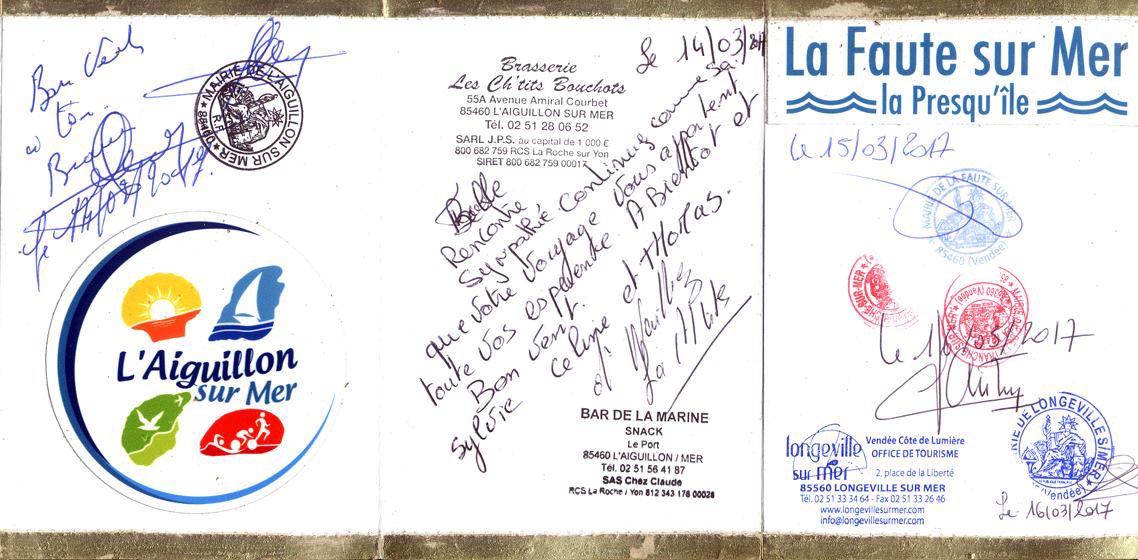 Bon Vent
à toi
MAIRIE DE L'AIGUILLON SUR MER
R.F.
L'Aiguillon
sur Mer
Le 14/03/2017
Brasserie
Les Ch'tits Bouchots
55A Avenue Amiral Courbet
85460 L'AIGUILLON SUR MER
Tél. 02 51 28 06 52
SARL J.P.S. au capital de 1 000 €
800 682 759 RCS La Roche sur Yon
SIRET 800 682 759 00017
Belle
Rencontre
Sympathie continues comme sa,
que votre Voyage vous apportent
toute vos esperance. A Bientot et
Bon vent.
Sylvie Celine et tHOMAS.
BAR DE LA MARINE
SNACK
Le Port
85460 L'AIGUILLON / MER
Tél. 02 51 56 41 87
SAS Chez Claude
RCS La Roche / Yon 812 343 176 00028
La Faute sur Mer
la Presqu'île
Le 15/03/2017
MAIRIE DE LA FAUTE SUR MER
85460 (Vendée)
longeville
sur mer
Vendée Côte de Lumière
OFFICE DE TOURISME
2, place de la Liberté
85560 LONGEVILLE SUR MER
Tél. 02 51 33 34 64 - Fax 02 51 33 26 46
www.longevillesurmer.com
info@longevillesurmer.com
MAIRIE DE LONGEVILLE S/MER
(Vendée)
Le 16/03/2017